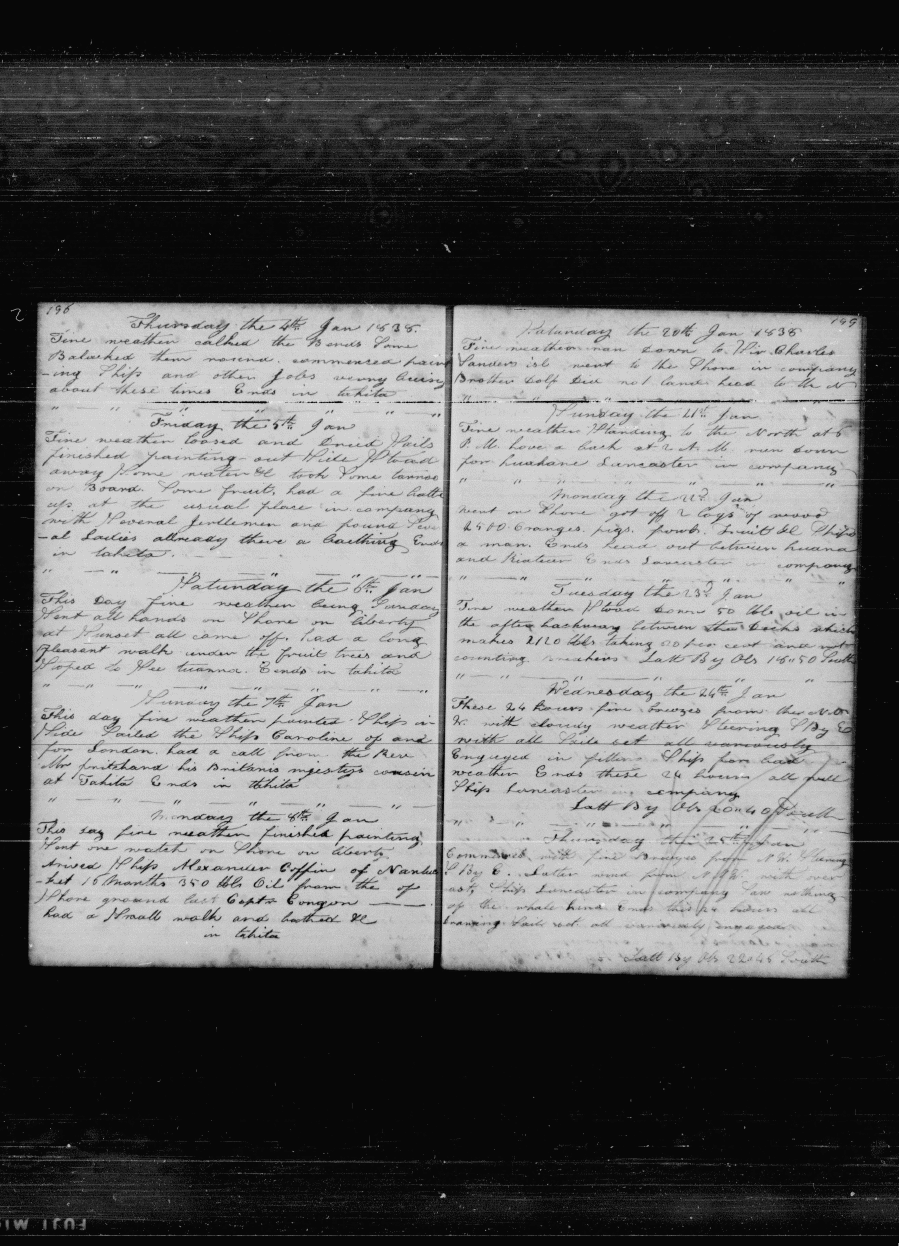 196
Thursday the 4th Jan 1838.
Fine weather calked the Bends Some
Blacked them round. commenced paint
-ing Ship and other Jobs verry
about these times Ends in tahita
Friday the 5th Jan
Fine weather loosed and Dried Sails
finished painting out Side Stowed
away Some water &c took Some
on Board. Some fruit, had a fine
at the usual place in company
with Several Jentlemen and found
-al Ladies allready there a Baithing Ends
in tahita.
Saturday the 6th Jan
This Day fine weather being Sunday
Sent all hands on Shore on liberty
at Sunset all came off. had a long
pleasant walk under the fruit trees and
Ends in tahita
Sunday the 7th Jan
This day fine weather painted Ship in
Side Sailed the Ship Caroline of and
for London. had a call from the Rev
Mr pritchard his Britanis mjestys consin
at Tahita Ends in tahita
Monday the 8th Jan
This day fine weather finished painting
Sent one watch on Shore on liberty
Arived Ship Alexander Coffin of Nantuc
-ket 16 Months 350 bbls Oil from the of
Shore ground last Capt Congon
had a Small walk and bathed &c
in tahita
199
Saturday the 20th Jan 1838
Fine weather ran Down to Sir Charles
Sanders isle went to the Shore in company
Brother Dolf Did not land head to the N
Sunday the 21st Jan
Fine weather Standing to the North at 5
P.M. hove a back at 2 A.M. run down
for huahane Lancaster in company
Monday the 22d Jan
went on Shore got off 2 of wood
2500 Oranges. pigs. fowls. fruit &c Ship
a man. Ends head out between huana
and Riatear Ends Lancaster in company
Tuesday the 23d Jan
Fine weather Stowed Down 50 bbls oil in
the after between the Decks which
makes 2120 bbls taking per cent and not
counting Latt By Obs 18"50 South
Wednesday the 24th Jan
These 24 hours fine breezes from the N.E
& with cloudy weather Steering S By E
with all Sails set all variously
Engaged in Ship for bad
weather Ends these 24 hours all well
Ship Lancaster in company
Latt By Obs 20"40 South
Thursday the 25th Jan
Commences with fine Breezes from N.W. Steering
S By E. Later wind from N.N.W. with over
cast Ship Lancaster in company Saw nothing
of the whale kind Ends these 24 hours all
drawing Sails set all variously engaged
Latt By Obs 22"45 South
FUJI MI